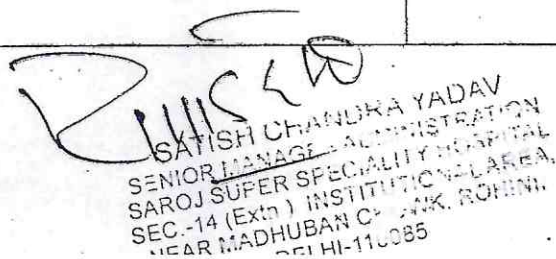 SATISH CHANDRA YADAV
SENIOR MANAGER ADMINISTRATION
SAROJ SUPER SPECIALITY HOSPITAL
SEC.-14 (Extn.) INSTITUTIONAL AREA,
NEAR MADHUBAN CHOWK, ROHINI,
DELHI-110085